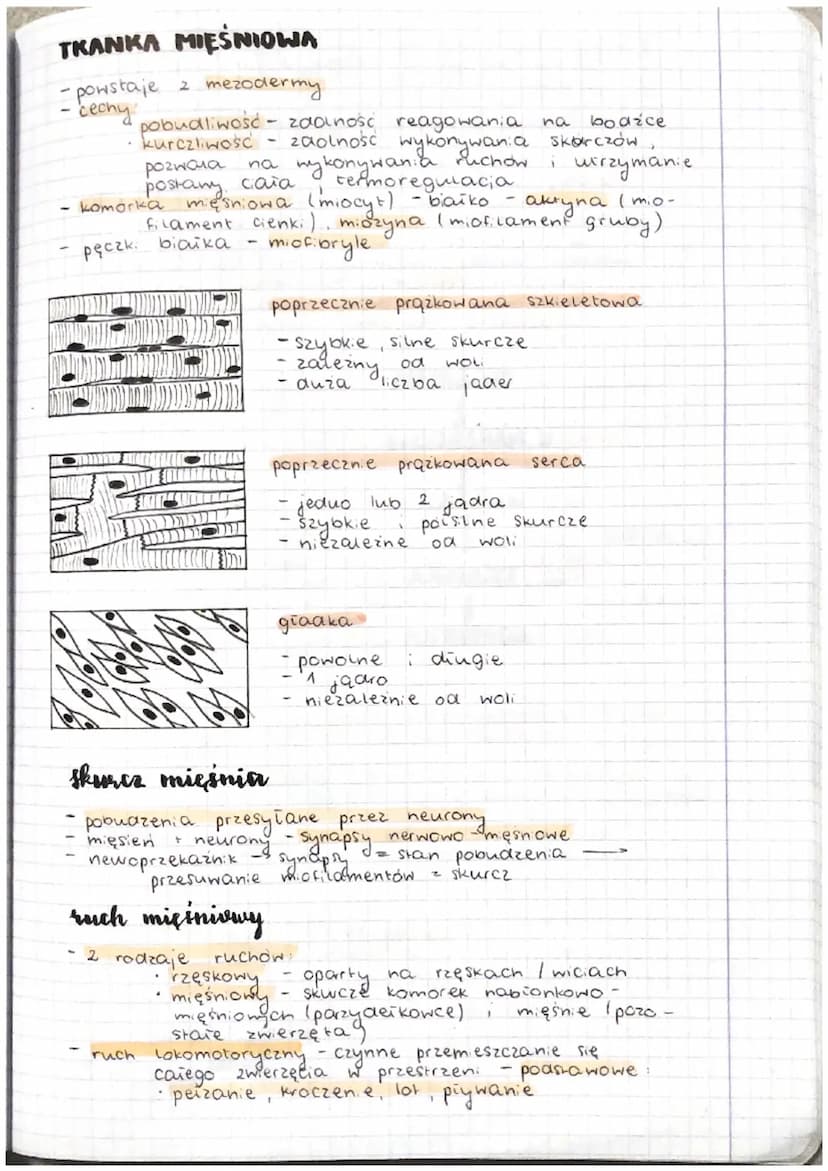 TKANKA MIĘŚNIOWA
- powstaje z mezodermy
- cechy:
pobudliwość - zdolność reagowania na bodźce
· kurczliwość - zdolność wykonywania skórczów,
pozwala na wykonywania ruchów i utrzymanie
postawy ciała, termoregulacja
- komórka mięśniowa (miocyt) - białko - aktyna (mio-
filament cienki), miozyna (miofilament gruby)
- pęczki białka - miofibryle
poprzecznie prążkowana szkieletowa
- szybkie, silne skurcze
- zależny od woli
- duża liczba jąder
poprzecznie prążkowana serca
- jedno lub 2 jądra
- szybkie i półsilne skurcze
- niezależne od woli
gładka
- powolne i długie
- 1 jądro
- niezależnie od woli
skurcz mięśnia
- pobudzenia przesyłane przez neurony
- mięsień + neurony - synapsy nerwowo-mięśniowe
- newoprzekaźnik → synapsy = stan pobudzenia →
przesuwanie miofilamentów = skurcz
ruch mięśniowy
- 2 rodzaje ruchów:
· rzęskowy - oparty na rzęskach / wiciach
· mięśniowy - skurcze komórek nabłonkowo-
mięśniowych (parzydełkowce) i mięśnie (pozo-
stałe zwierzęta)
- ruch lokomotoryczny - czynne przemieszczanie się
całego zwierzęcia w przestrzeni - podstawowe:
· pełzanie, kroczenie, lot, pływanie